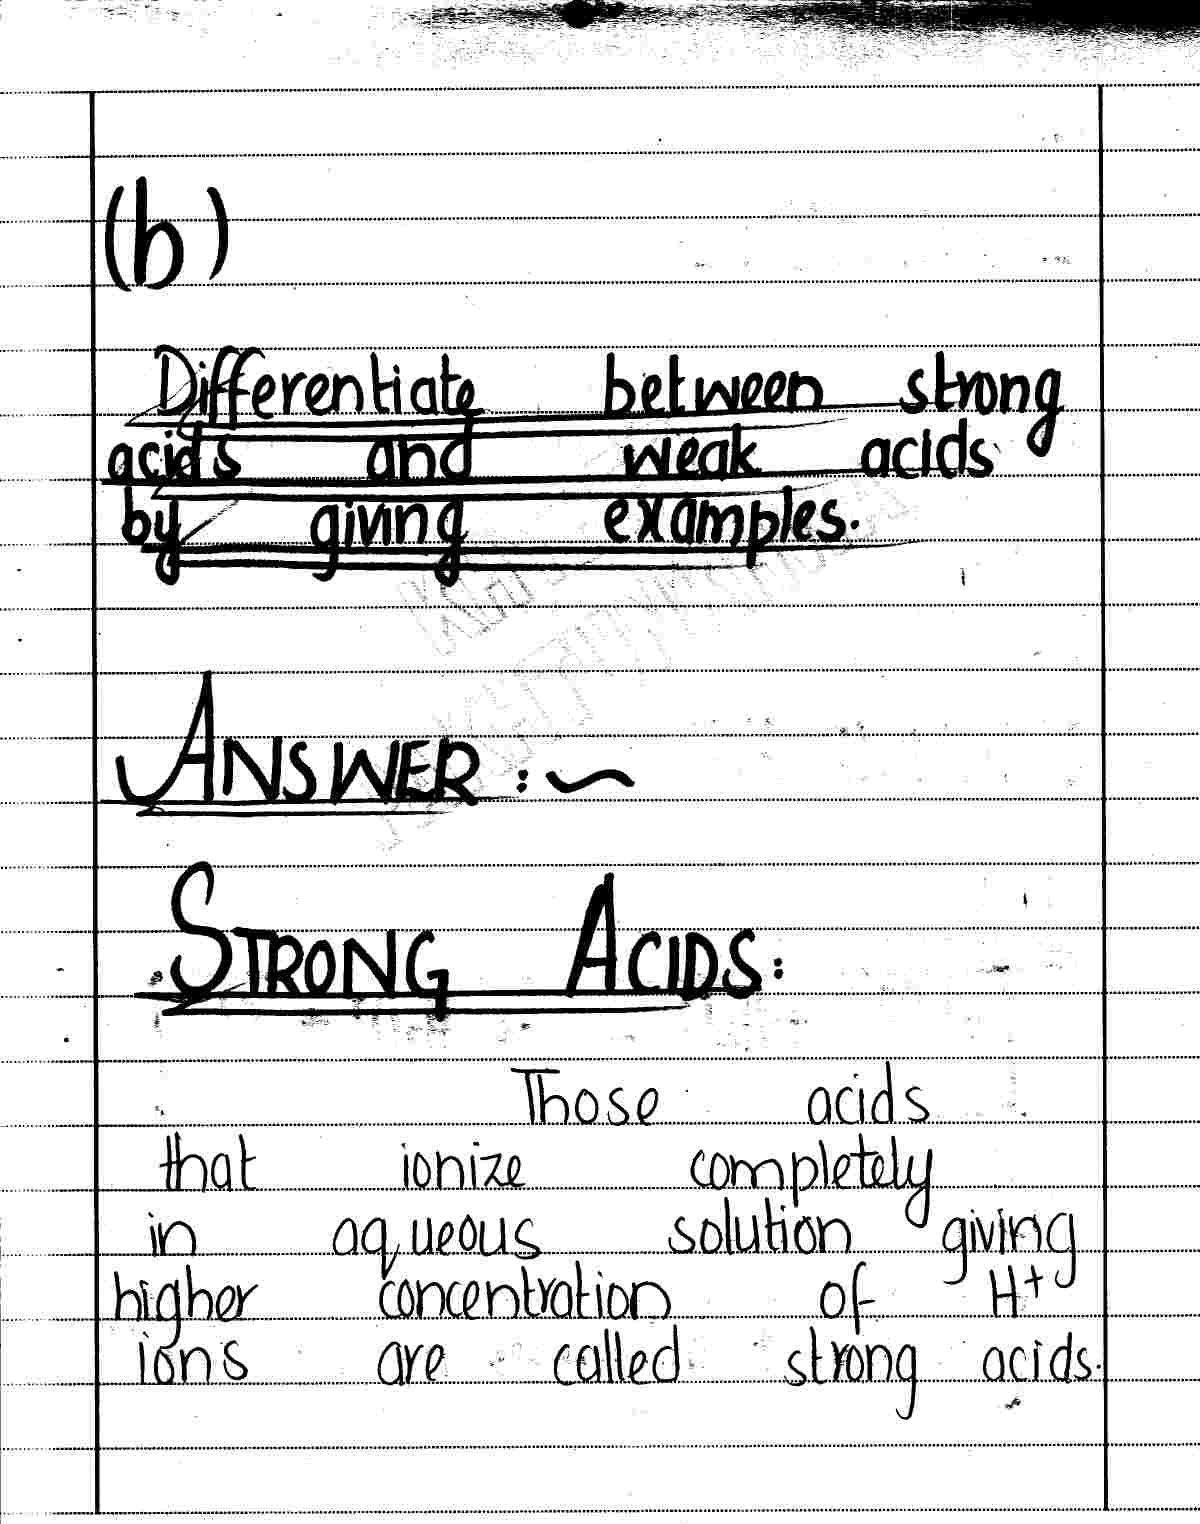 (b)
Differentiate between strong
acids and weak acids
by giving examples.
ANSWER :~
STRONG ACIDS:
Those acids
that ionize completely
in aqueous solution giving
higher concentration of H⁺
ions are called strong acids.